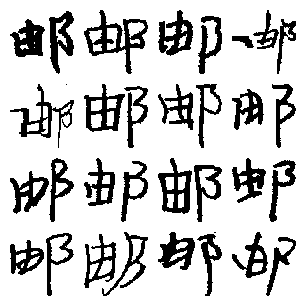 邮邮邮邮
邮邮邮邮
邮邮邮邮
邮邮邮邮